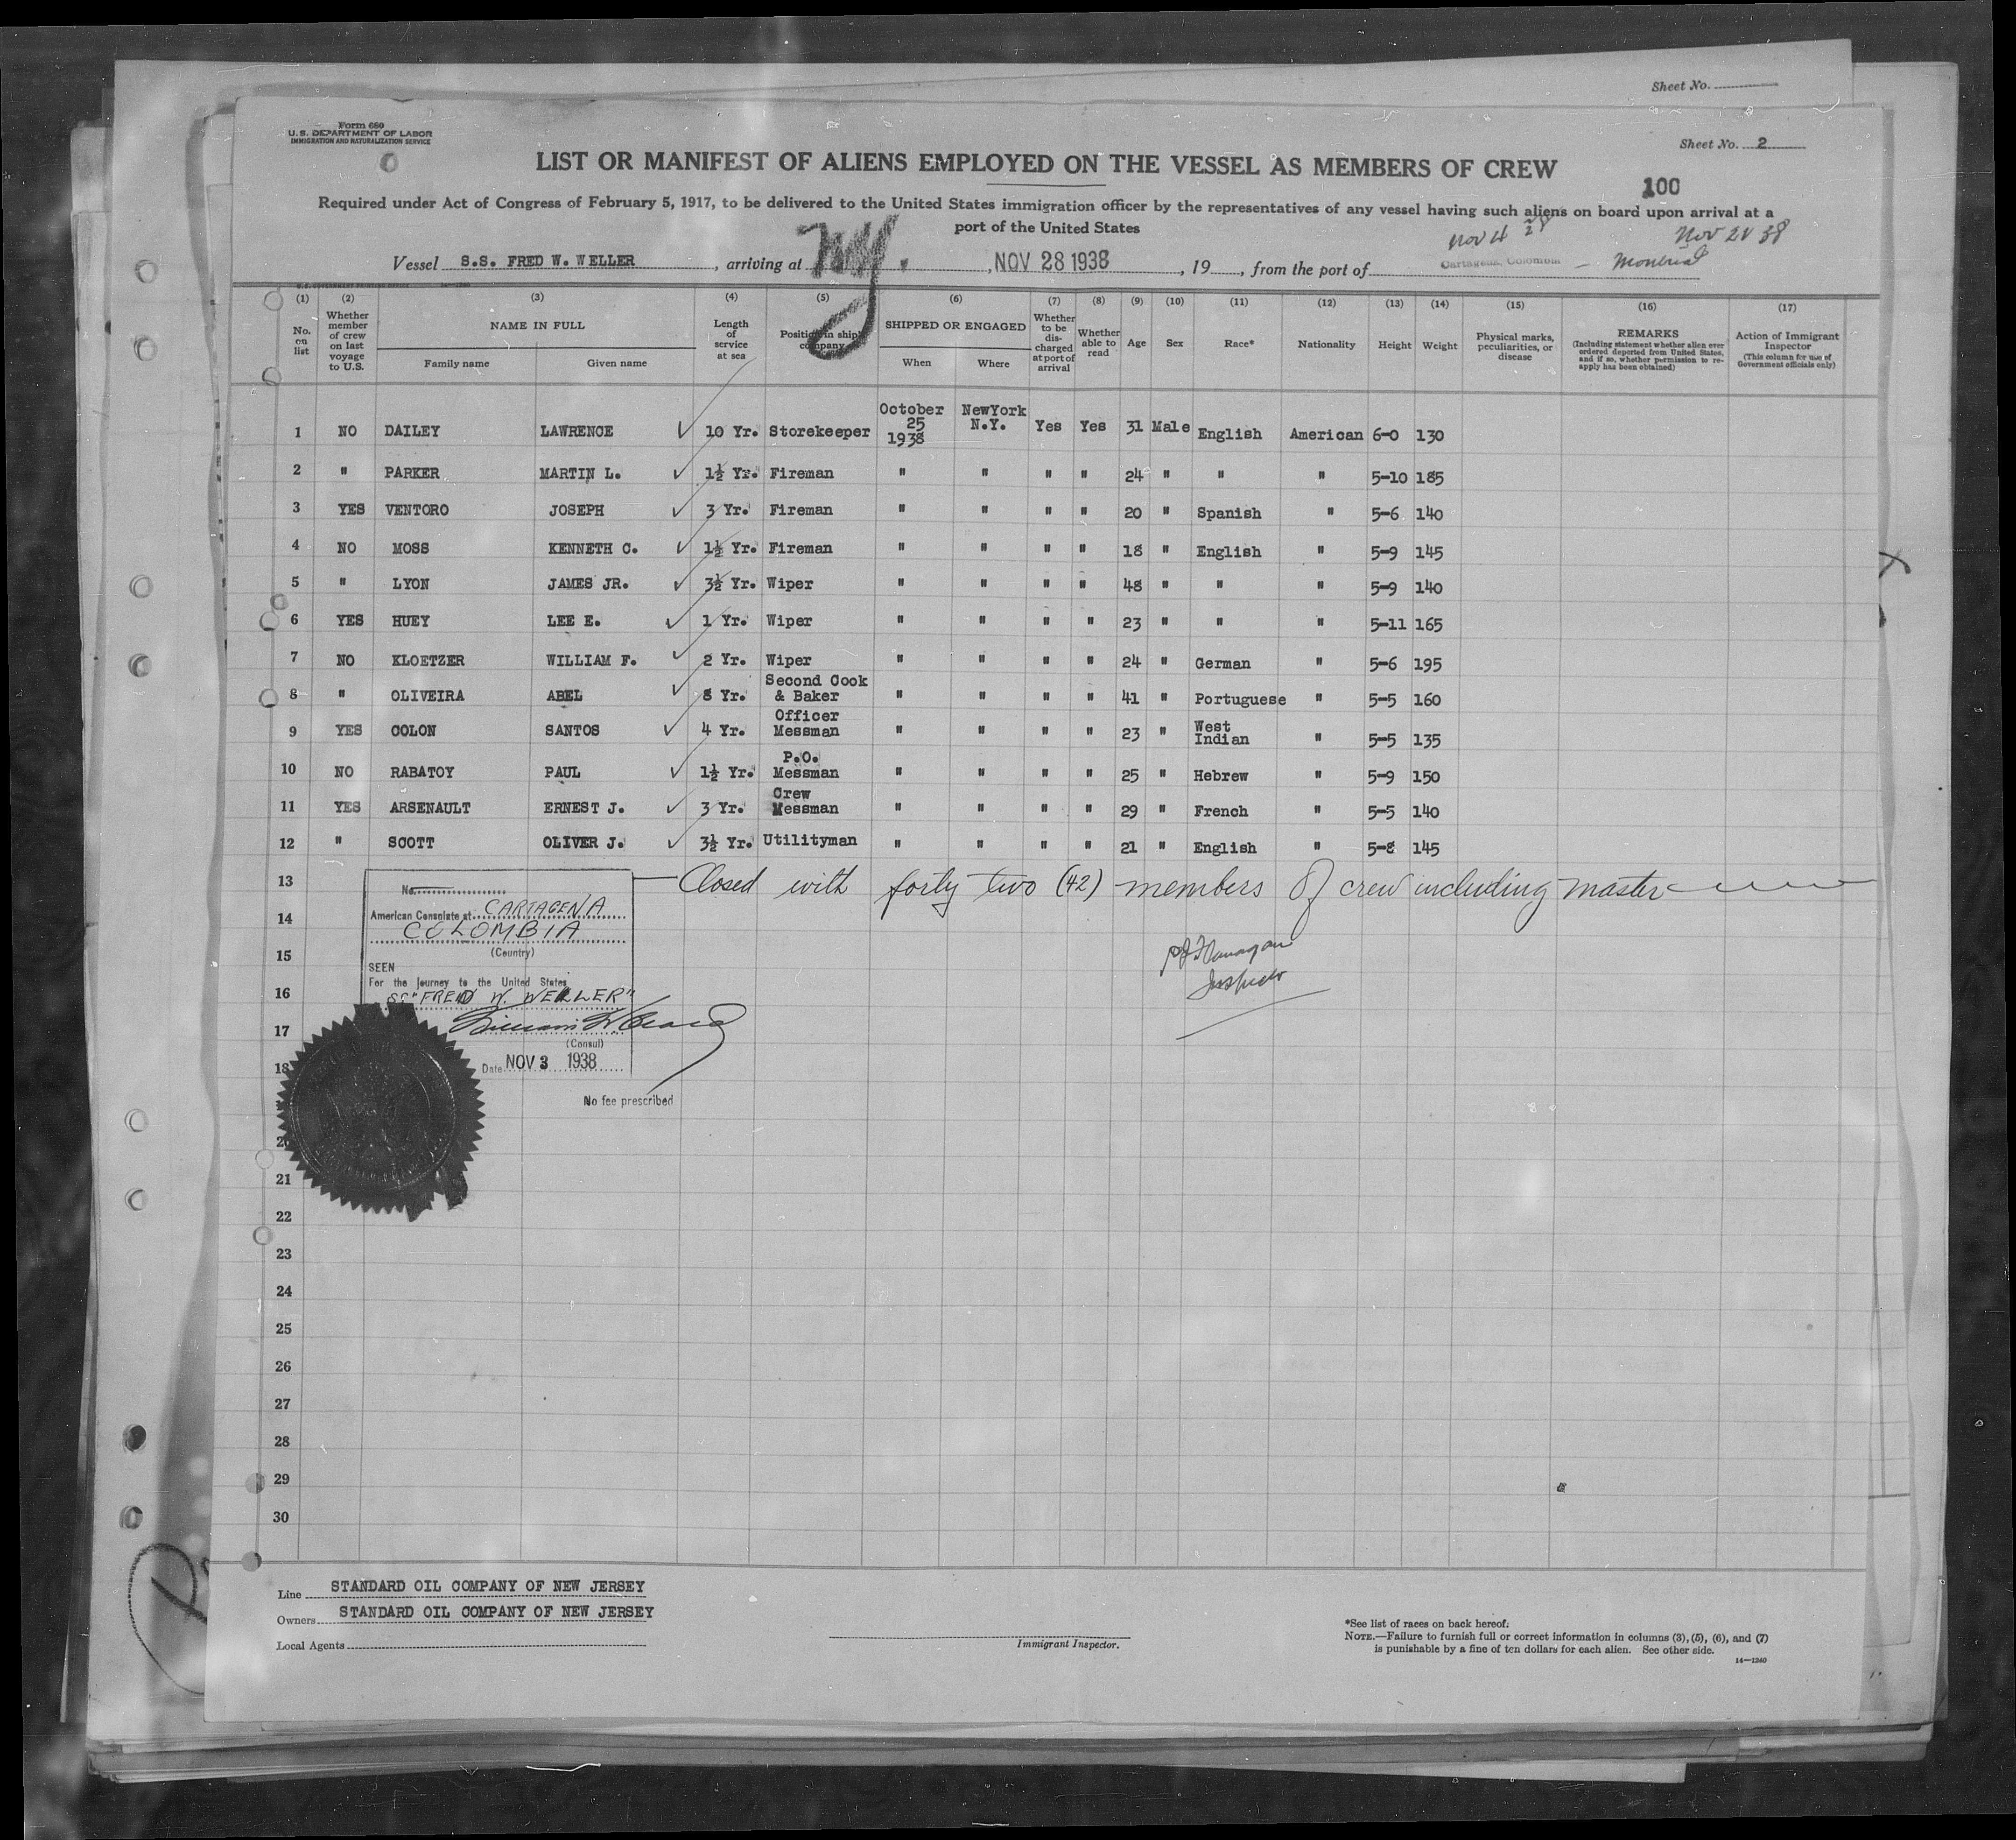 Sheet No.
Form 680
U.S. DEPARTMENT OF LABOR
IMMIGRATION AND NATURALIZATION SERVICE
Sheet No. 2
LIST OR MANIFEST OF ALIENS EMPLOYED ON THE VESSEL AS MEMBERS OF CREW
100
Required under Act of Congress of February 5, 1917, to be delivered to the United States immigration officer by the representatives of any vessel having such aliens on board upon arrival at a
port of the United States
Nov 4 Nov 21 38
Vessel S.S. FRED W. WELLER, arriving at N.Y., NOV 28 1938, 19, from the port of Cartagena, Colombia – Montreal
(1) (2) (3) (4) (5) (6) (7) (8) (9) (10) (11) (12) (13) (14) (15) (16) (17)
No. on list Whether member of crew on last voyage to U.S. NAME IN FULL Family name Given name Length of service at sea Position in ship's company SHIPPED OR ENGAGED When Where Whether to be discharged at port of arrival Whether able to read Age Sex Race* Nationality Height Weight Physical marks, peculiarities, or disease REMARKS (Including statement whether alien ever ordered deported from United States, and if so, whether permission to reapply has been obtained) Action of Immigrant Inspector (This column for use of Government officials only)
1 NO DAILEY LAWRENCE 10 Yr. Storekeeper October 25 1938 NewYork N.Y. Yes Yes 31 Male English American 6-0 130
2 " PARKER MARTIN L. 1½ Yr. Fireman " " " " 24 " " " 5-10 185
3 YES VENTORO JOSEPH 3 Yr. Fireman " " " " 20 " Spanish " 5-6 140
4 NO MOSS KENNETH C. 1½ Yr. Fireman " " " " 18 " English " 5-9 145
5 " LYON JAMES JR. 3½ Yr. Wiper " " " " 48 " " " 5-9 140
6 YES HUEY LEE E. 1 Yr. Wiper " " " " 23 " " " 5-11 165
7 NO KLOETZER WILLIAM F. 2 Yr. Wiper " " " " 24 " German " 5-6 195
8 " OLIVEIRA ABEL 8 Yr. Second Cook & Baker " " " " 41 " Portuguese " 5-5 160
9 YES COLON SANTOS 4 Yr. Officer Messman " " " " 23 " West Indian " 5-5 135
10 NO RABATOY PAUL 1½ Yr. P.O. Messman " " " " 25 " Hebrew " 5-9 150
11 YES ARSENAULT ERNEST J. 3 Yr. Crew Messman " " " " 29 " French " 5-5 140
12 " SCOTT OLIVER J. 3½ Yr. Utilityman " " " " 21 " English " 5-8 145
13 Closed with forty two (42) members of crew including master
No.
14 American Consulate at CARTAGENA
COLOMBIA
(Country)
15 Inspector
SEEN
For the journey to the United States
16 SS "FRED W. WELLER"
17
(Consul)
18 Date NOV 3 1938
No fee prescribed
20
21
22
23
24
25
26
27
28
29
30
Line STANDARD OIL COMPANY OF NEW JERSEY
Owners STANDARD OIL COMPANY OF NEW JERSEY
Local Agents
Immigrant Inspector.
*See list of races on back hereof.
NOTE.—Failure to furnish full or correct information in columns (3), (5), (6), and (7)
is punishable by a fine of ten dollars for each alien. See other side.
14—1240